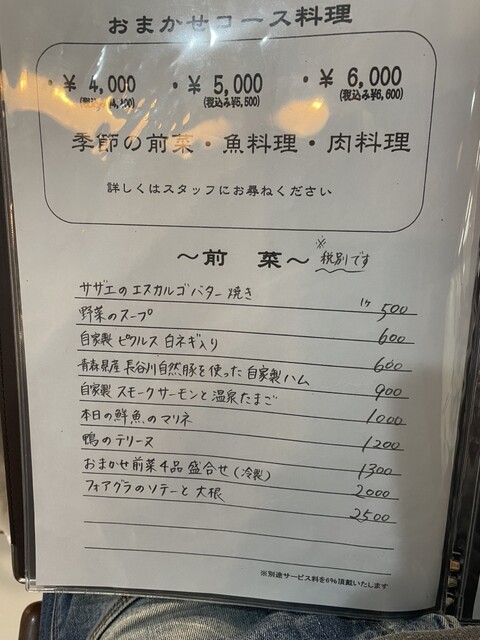 おまかせコース料理
・¥ 4,000 ・¥ 5,000 ・¥ 6,000
(税込み¥4,400) (税込み¥5,500) (税込み¥6,600)
季節の前菜・魚料理・肉料理
詳しくはスタッフにお尋ねください
～前 菜～ ※税別です
サザエのエスカルゴバター焼き 1ケ 500
野菜のスープ 600
自家製 ピクルス 白ネギ入り 600
青森県産 長谷川自然豚を使った 自家製ハム 900
自家製 スモークサーモンと温泉たまご 1000
本日の鮮魚のマリネ 1200
鴨のテリーヌ 1300
おまかせ前菜4品 盛合せ (冷製) 2000
フォアグラのソテーと 大根 2500
※別途サービス料を6%頂戴いたします